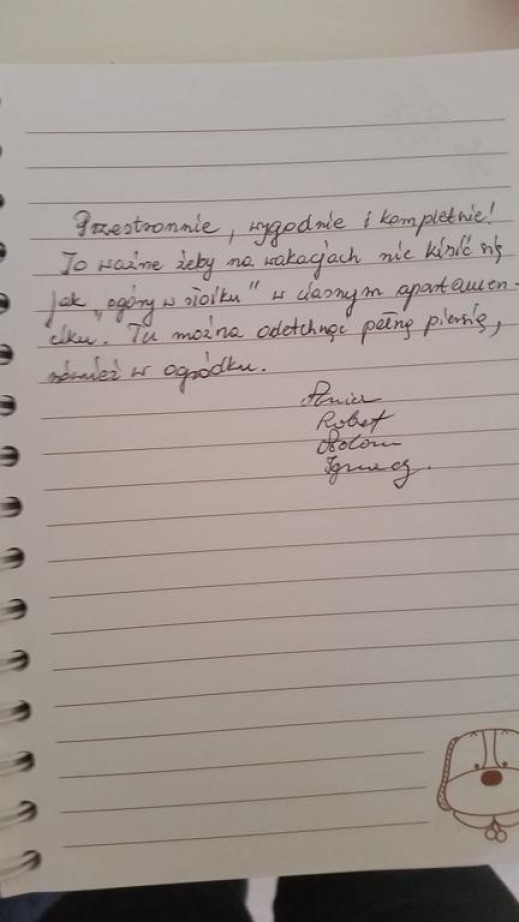 Przestronnie, wygodnie i kompletnie!
To ważne żeby na wakacjach nie kisić się
jak "ogóry w słoiku" w ciasnym apartamen-
ciku. Tu można odetchnąć pełną piersią,
również w ogródku.
Ania
Robert
Ignacy.